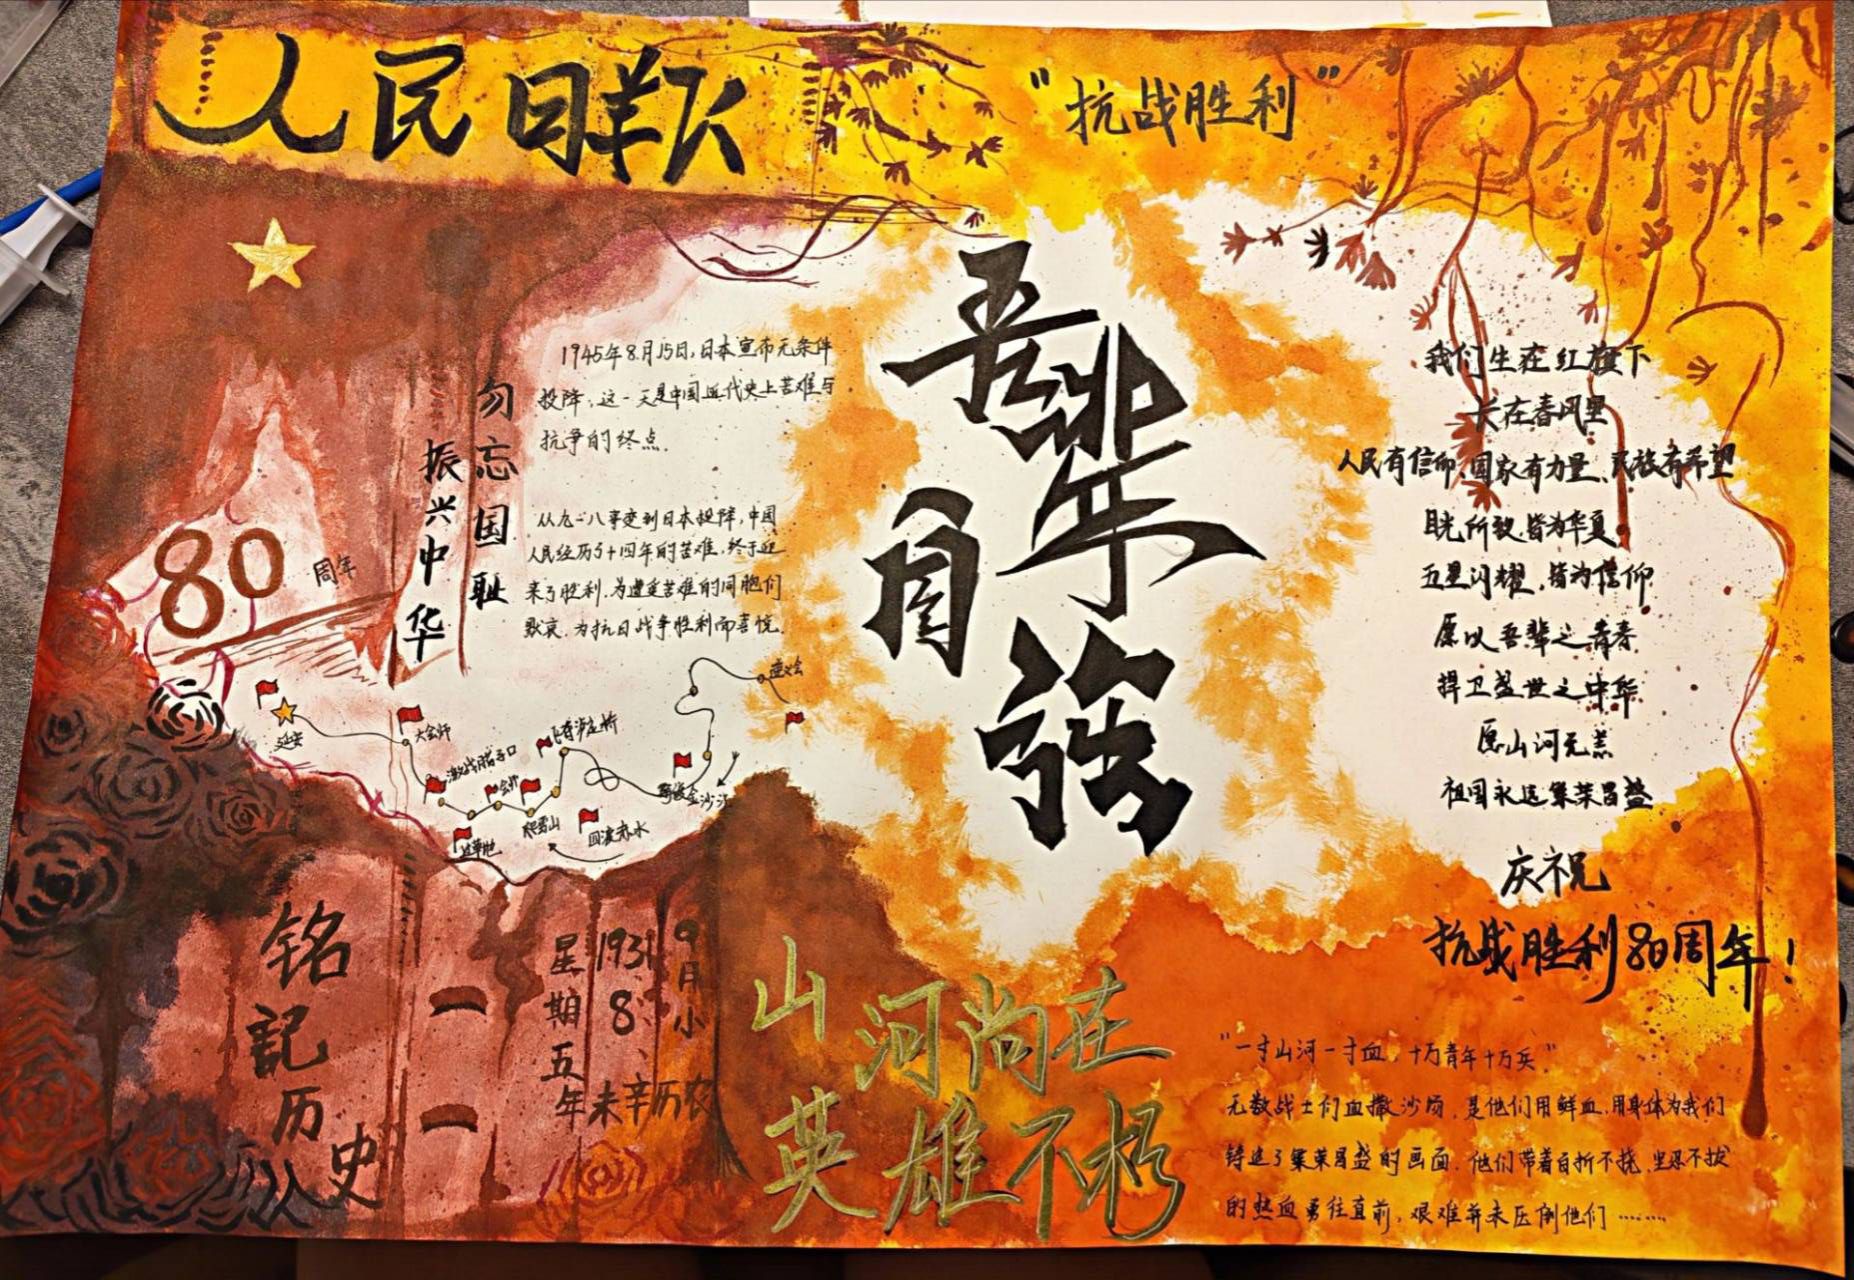 人民日報
"抗战胜利"
1945年8月15日,日本宣布无条件
投降,这一天是中国近代史上苦难与
抗争的终点.
勿忘国耻
振兴中华
从九一八事变到日本投降,中国
人民经历了十四年的苦难,终于迎
来了胜利.为遭受苦难的同胞们
默哀.为抗日战争胜利而喜悦.
80周年
延安
大会师
激战腊子口
会师
过草地
爬雪山
飞夺泸定桥
四渡赤水
金沙江
遵义会
吾辈
自强
我们生在红旗下
长在春风里
人民有信仰、国家有力量、民族有希望
目光所致皆为华夏
五星闪耀,皆为信仰
愿以吾辈之青春
捍卫盛世之中华
愿山河无恙
祖国永远繁荣昌盛
庆祝
抗战胜利80周年!
铭記历史
星期五
1931年
9月小
8
农历辛未年
山河尚在
英雄不朽
"一寸山河一寸血,十万青年十万兵"
无数战士们血撒沙场,是他们用鲜血,用身体为我们
铸造了繁荣昌盛的画面.他们带着百折不挠,坚忍不拔
的热血勇往直前,艰难并未压倒他们……